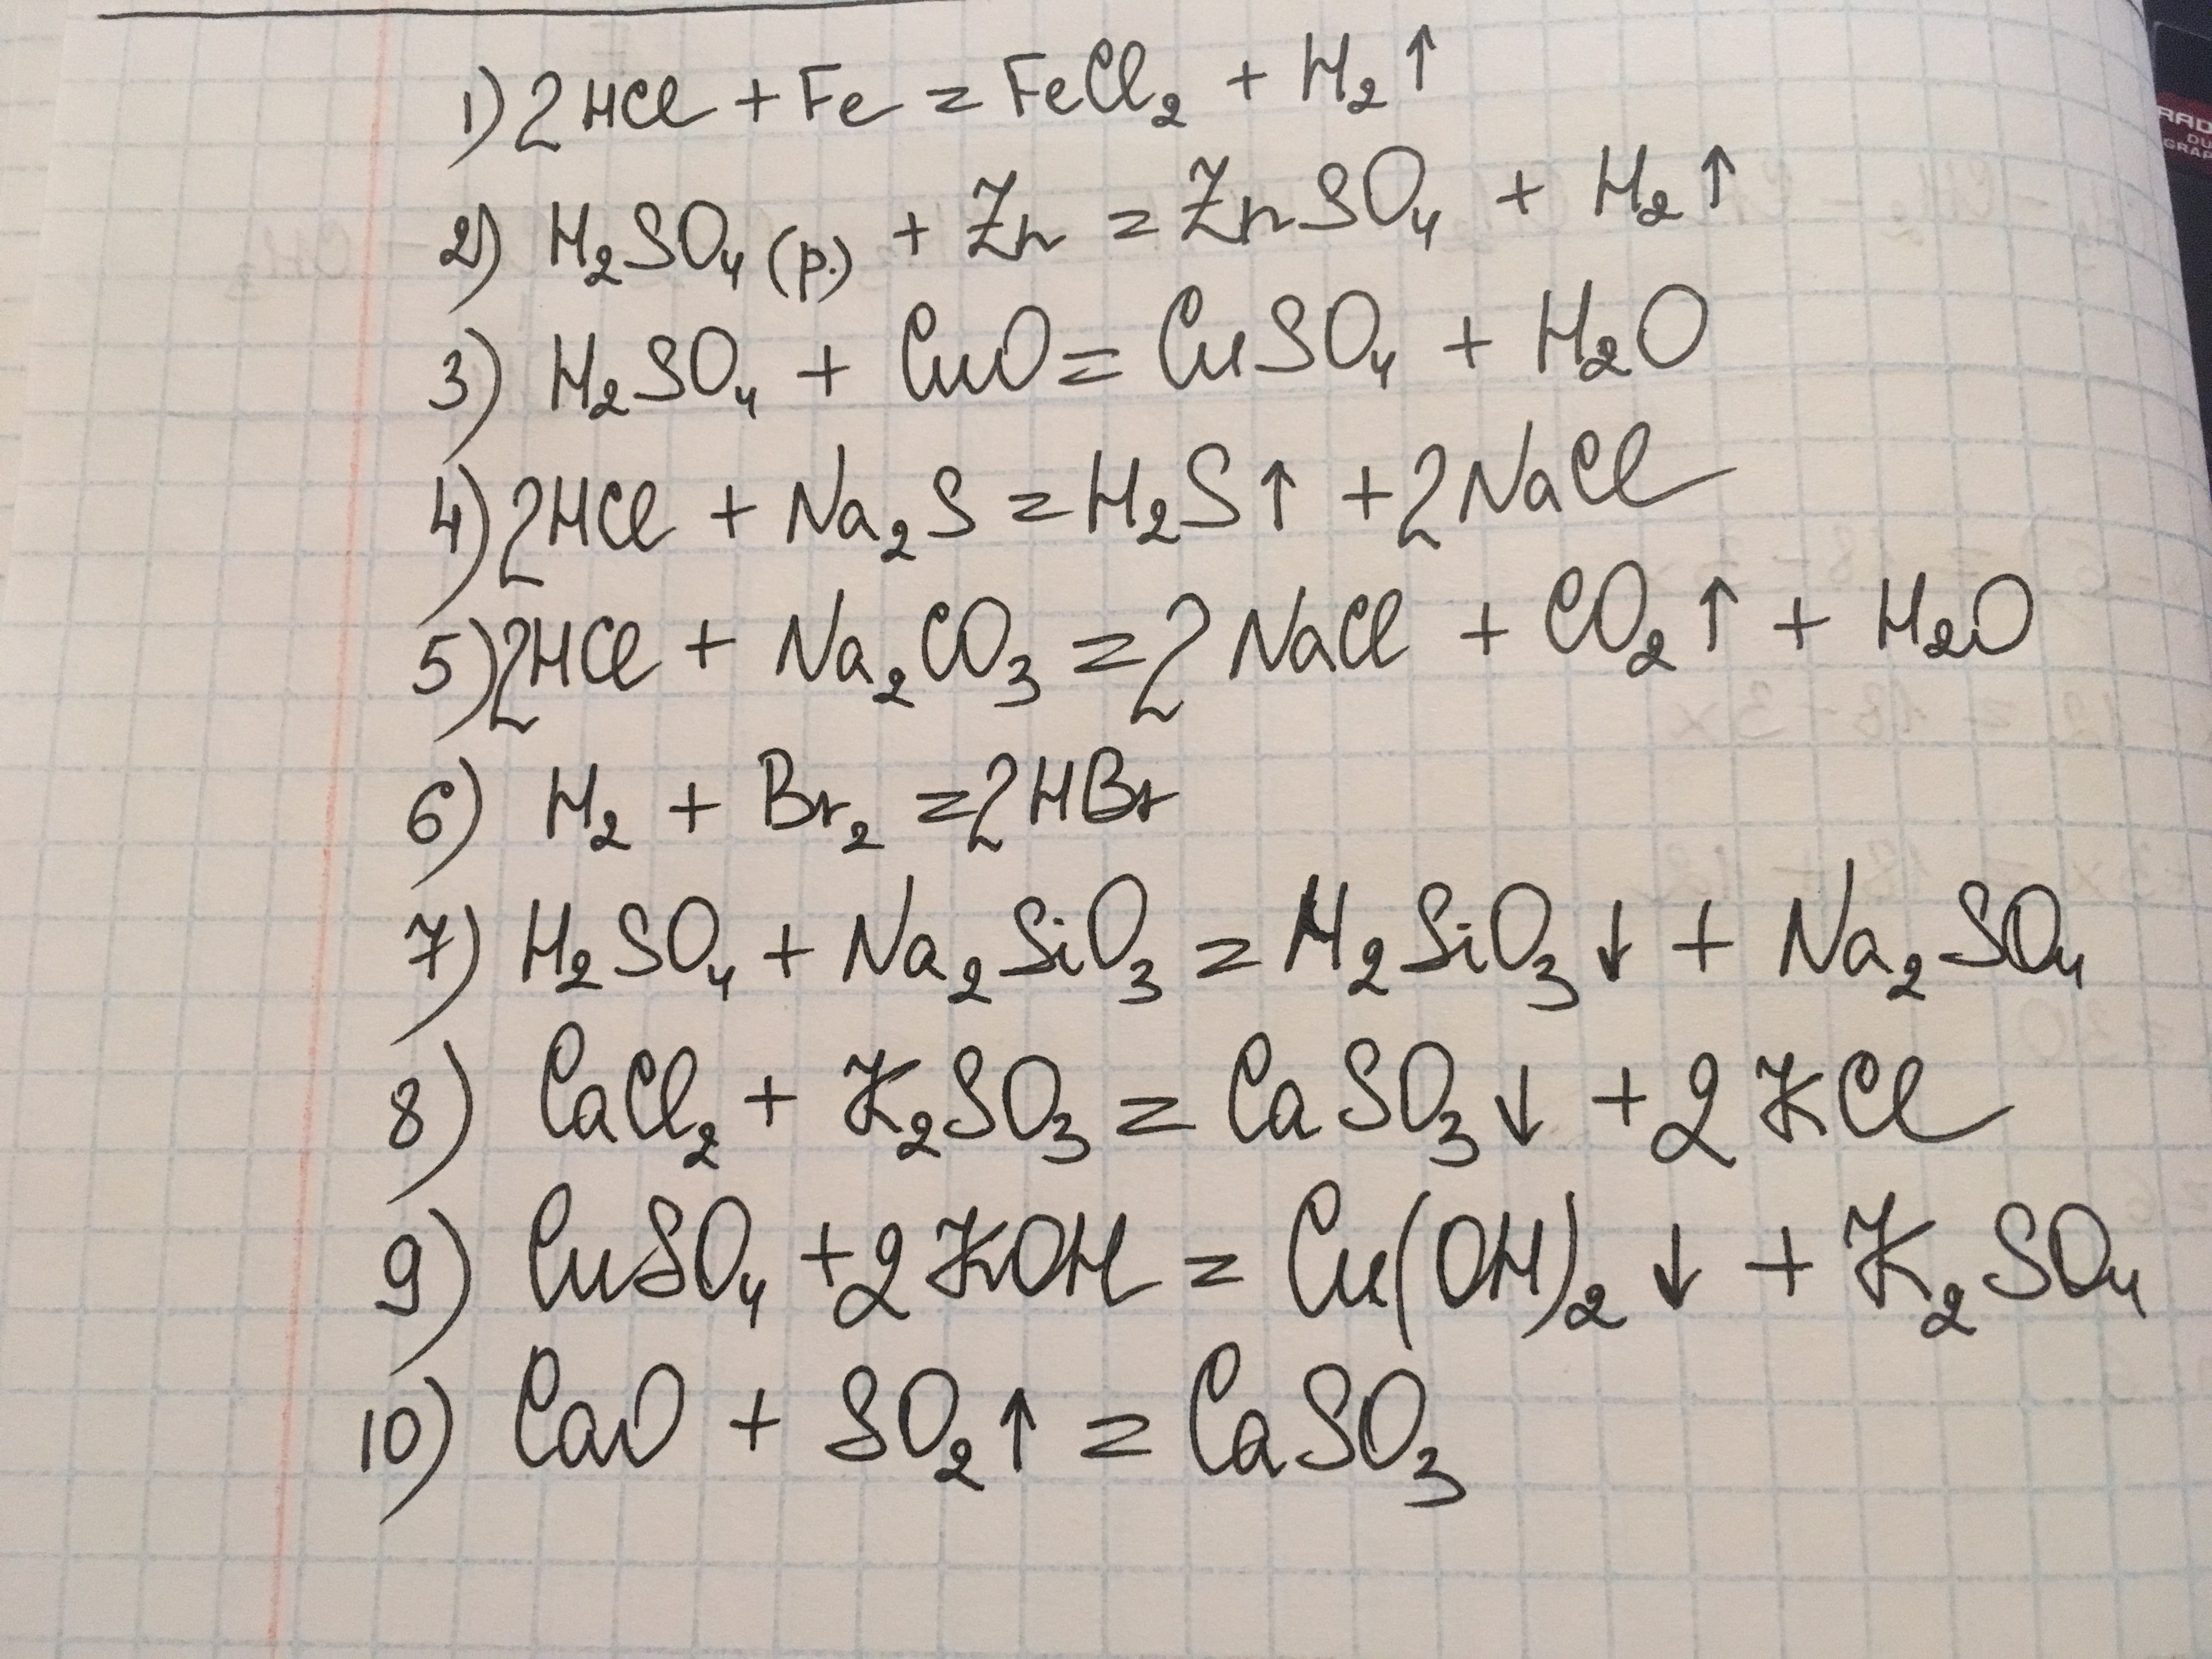 1) 2HCl + Fe = FeCl₂ + H₂↑
2) H₂SO₄ (р.) + Zn = ZnSO₄ + H₂↑
3) H₂SO₄ + CuO = CuSO₄ + H₂O
4) 2HCl + Na₂S = H₂S↑ + 2NaCl
5) 2HCl + Na₂CO₃ = 2NaCl + CO₂↑ + H₂O
6) H₂ + Br₂ = 2HBr
7) H₂SO₄ + Na₂SiO₃ = H₂SiO₃↓ + Na₂SO₄
8) CaCl₂ + K₂SO₃ = CaSO₃↓ + 2KCl
9) CuSO₄ + 2KOH = Cu(OH)₂↓ + K₂SO₄
10) CaO + SO₂↑ = CaSO₃